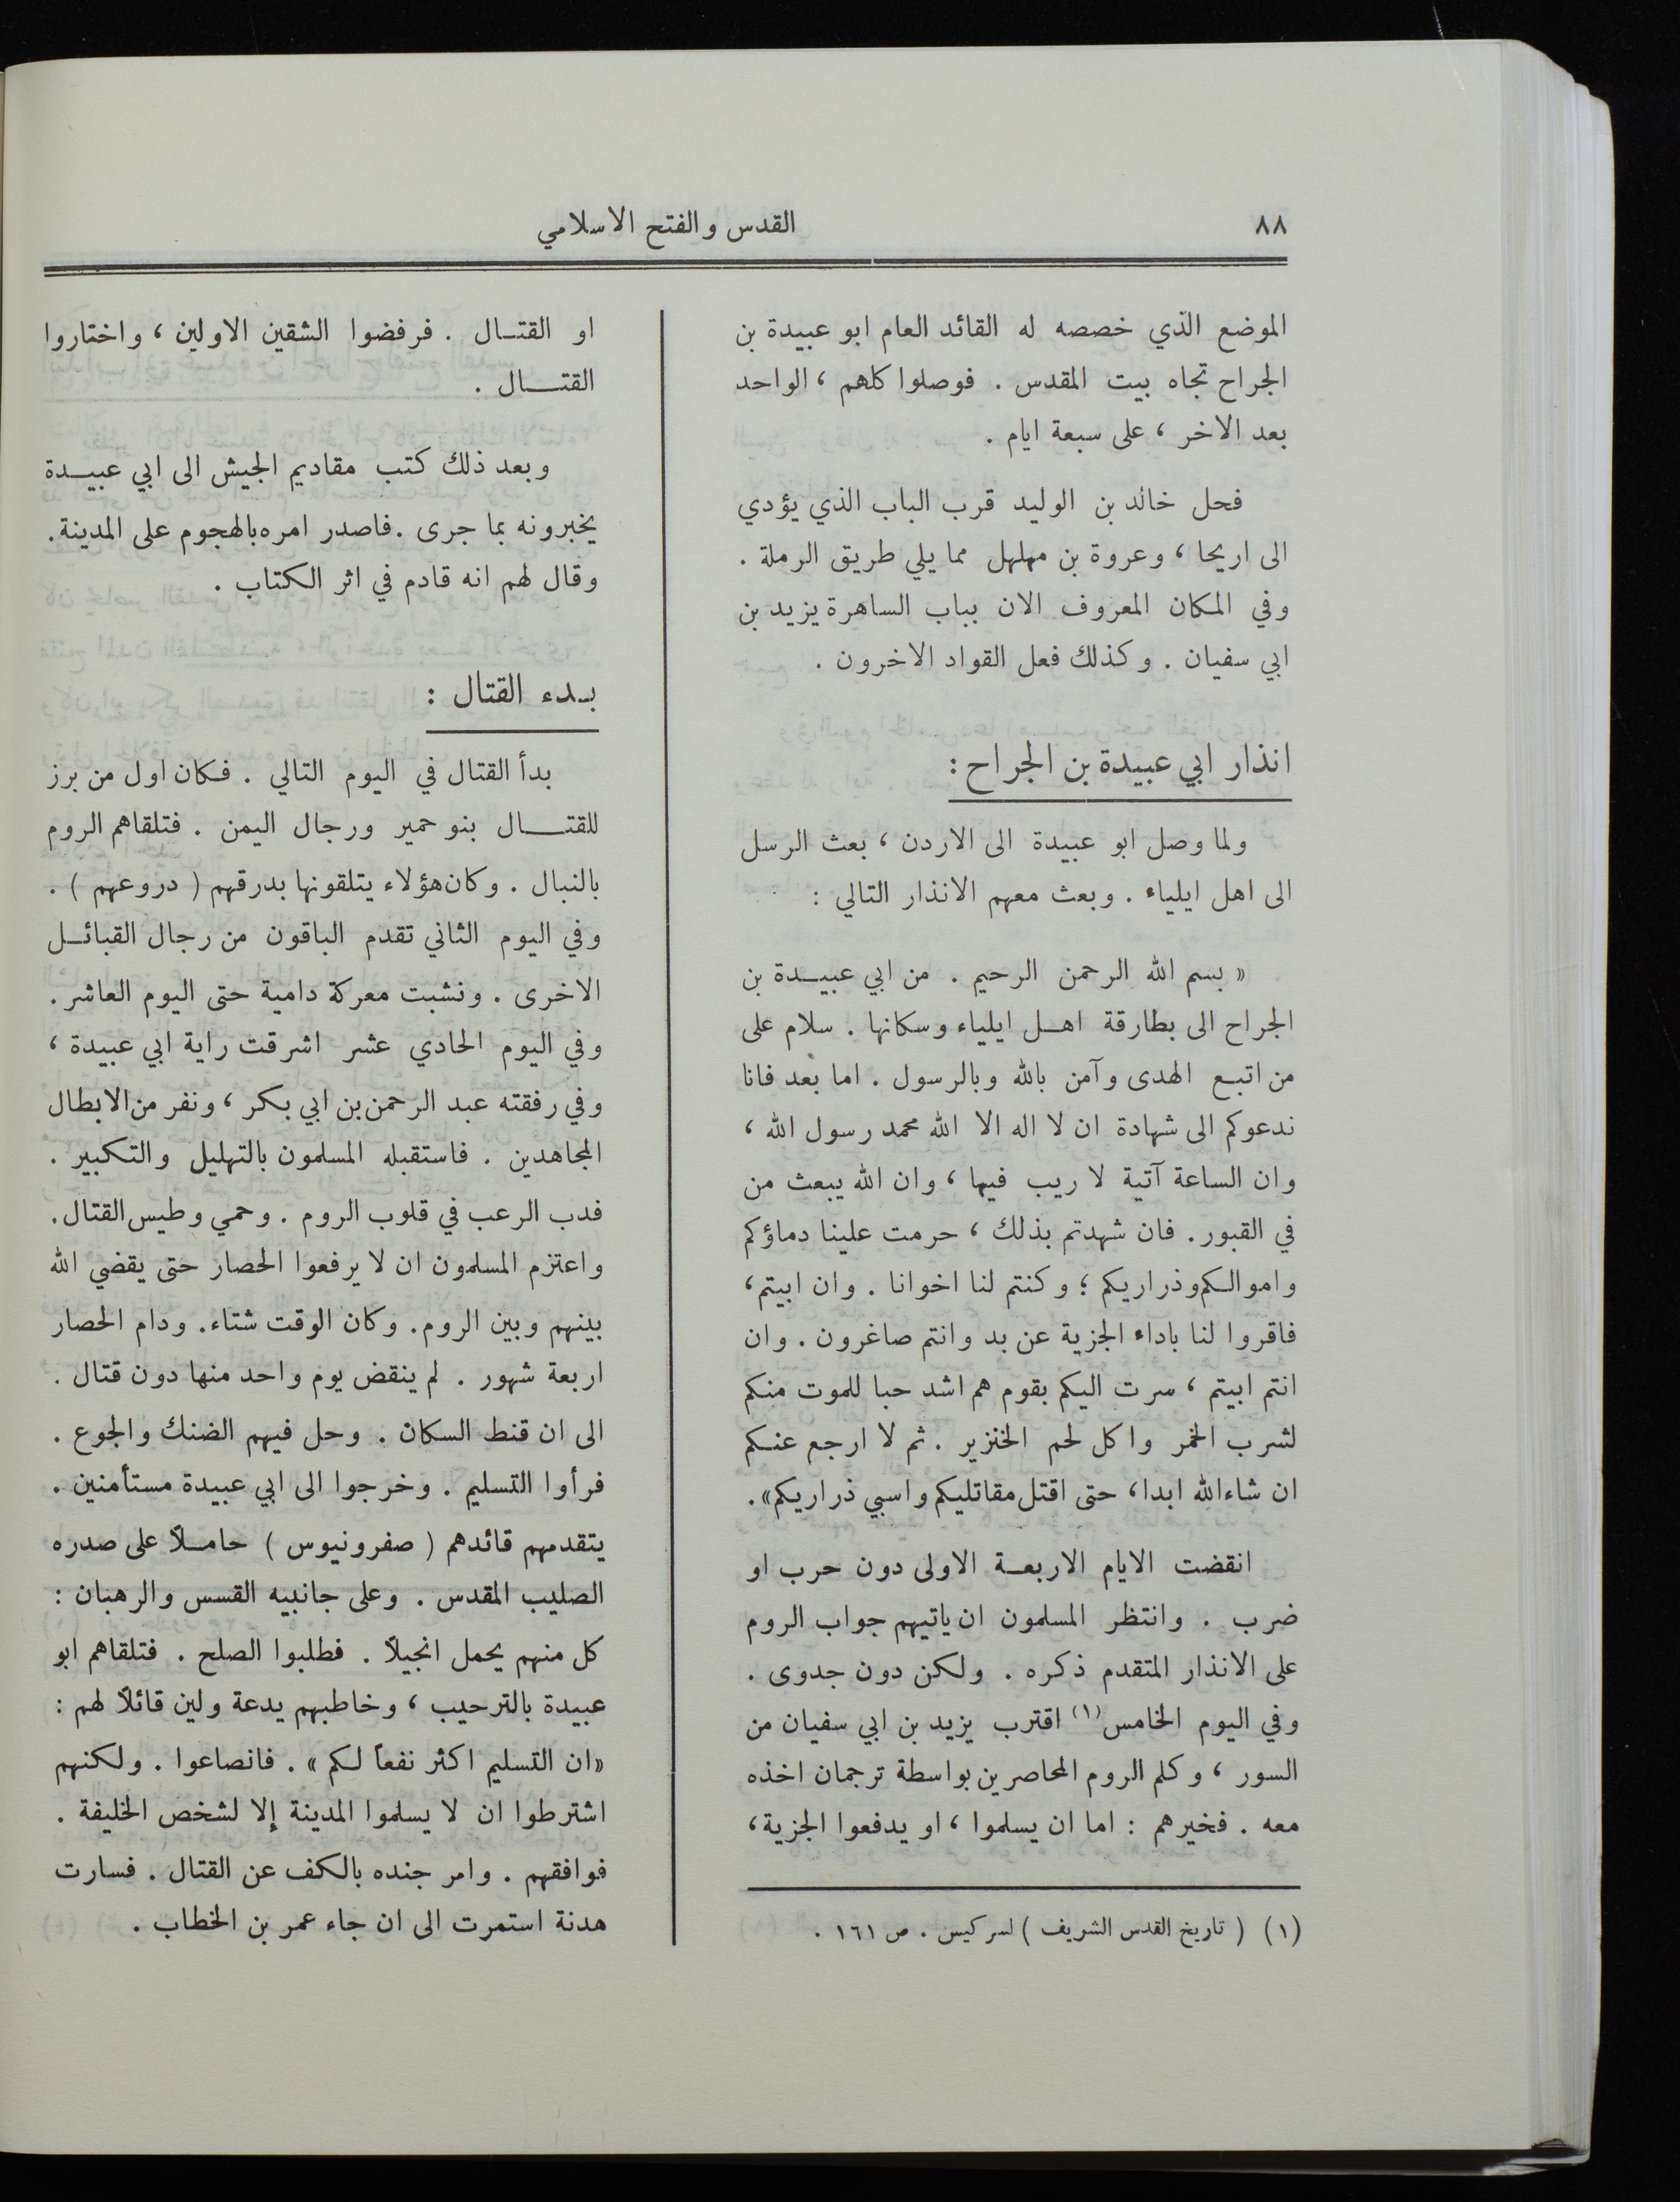 ٨٨
القدس والفتح الاسلامي
الموضع الذي خصصه له القائد العام ابو عبيدة بن
الجراح تجاه بيت المقدس . فوصلوا كلهم ، الواحد
بعد الاخر ، على سبعة ايام .
فحل خالد بن الوليد قرب الباب الذي يؤدي
الى اريحا ، وعروة بن مهلهل مما يلي طريق الرملة .
وفي المكان المعروف الان بباب الساهرة يزيد بن
ابي سفيان . وكذلك فعل القواد الاخرون .
انذار ابي عبيدة بن الجراح :
ولما وصل ابو عبيدة الى الاردن ، بعث الرسل
الى اهل ايلياء . وبعث معهم الانذار التالي :
« بسم الله الرحمن الرحيم . من ابي عبيدة بن
الجراح الى بطارقة اهل ايلياء وسكانها . سلام على
من اتبع الهدى وآمن بالله وبالرسول . اما بعد فانا
ندعوكم الى شهادة ان لا اله الا الله محمد رسول الله ،
وان الساعة آتية لا ريب فيها ، وان الله يبعث من
في القبور . فان شهدتم بذلك ، حرمت علينا دماؤكم
واموالكم وذراريكم ؛ وكنتم لنا اخوانا . وان ابيتم ،
فاقروا لنا باداء الجزية عن بد وانتم صاغرون . وان
انتم ابيتم ، سرت اليكم بقوم هم اشد حبا للموت منكم
لشرب الخمر واكل لحم الخنزير . ثم لا ارجع عنكم
ان شاءالله ابدا ، حتى اقتل مقاتليكم واسبي ذراريكم» .
انقضت الايام الاربعة الاولى دون حرب او
ضرب . وانتظر المسلمون ان ياتيهم جواب الروم
على الانذار المتقدم ذكره . ولكن دون جدوى .
وفي اليوم الخامس (١) اقترب يزيد بن ابي سفيان من
السور ، وكلم الروم المحاصرين بواسطة ترجمان اخذه
معه . فخيرهم : اما ان يسلموا ، او يدفعوا الجزية ،
(١) ( تاريخ القدس الشريف ) لسركيس . ص ١٦١ .
او القتال . فرفضوا الشقين الاولين ، واختاروا
القتال .
وبعد ذلك كتب مقاديم الجيش الى ابي عبيدة
يخبرونه بما جرى . فاصدر امره بالهجوم على المدينة .
وقال لهم انه قادم في اثر الكتاب .
بدء القتال :
بدأ القتال في اليوم التالي . فكان اول من برز
للقتال بنو حمير ورجال اليمن . فتلقاهم الروم
بالنبال . وكان هؤلاء يتلقونها بدرقهم ( دروعهم ) .
وفي اليوم الثاني تقدم الباقون من رجال القبائل
الاخرى . ونشبت معركة دامية حتى اليوم العاشر .
وفي اليوم الحادي عشر اشرقت راية ابي عبيدة ،
وفي رفقته عبد الرحمن بن ابي بكر ، ونفر من الابطال
المجاهدين . فاستقبله المسلمون بالتهليل والتكبير .
فدب الرعب في قلوب الروم . وحمي وطيس القتال .
واعتزم المسلمون ان لا يرفعوا الحصار حتى يقضي الله
بينهم وبين الروم . وكان الوقت شتاء . ودام الحصار
اربعة شهور . لم ينقض يوم واحد منها دون قتال .
الى ان قنط السكان . وحل فيهم الضنك والجوع .
فرأوا التسليم . وخرجوا الى ابي عبيدة مستأمنين .
يتقدمهم قائدهم ( صفرونيوس ) حاملاً على صدره
الصليب المقدس . وعلى جانبيه القسس والرهبان :
كل منهم يحمل انجيلاً . فطلبوا الصلح . فتلقاهم ابو
عبيدة بالترحيب ، وخاطبهم يدعة ولين قائلاً لهم :
«ان التسليم اكثر نفعاً لكم» . فانصاعوا . ولكنهم
اشترطوا ان لا يسلموا المدينة إلا لشخص الخليفة .
فوافقهم . وامر جنده بالكف عن القتال . فسارت
هدنة استمرت الى ان جاء عمر بن الخطاب .